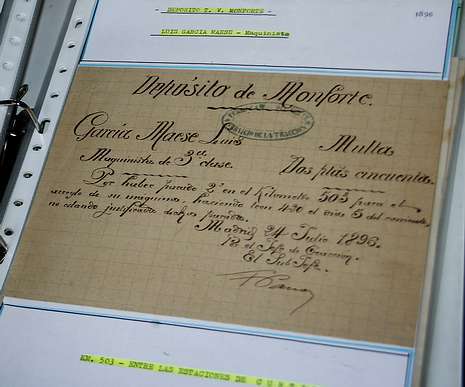 DEPOSITO T. V. MONFORTE.
1896
LUIS GARCIA MAESU - Maquinista
Depósito de Monforte.
García Maese Luis Multa
Maquinista de 3ª clase. Dos ptas cincuenta.
Por haber parado 2' en el kilómetro 503 para el
arreglo de su máquina, haciendo tren 420 el día 5 del corriente,
no estando justificada dicha parada.
Madrid 24 Julio 1896.
El SubJefe.
KM. 503 - ENTRE LAS ESTACIONES DE